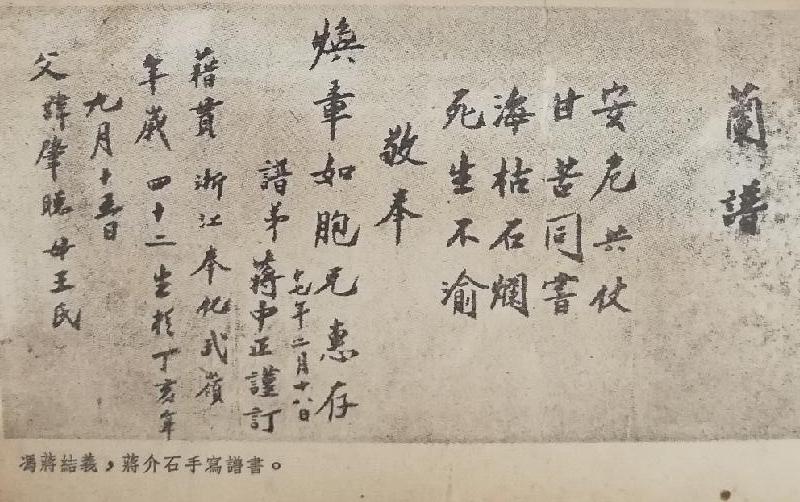 蘭譜
安危共仗
甘苦同嘗
海枯石爛
死生不渝
敬奉
煥章如胞兄惠存
譜弟 蔣中正謹訂
七年二月十八日
籍貫 浙江奉化武嶺
年歲 四十二 生於丁亥年
九月十五日
父諱肇聰 母王氏
馮蔣結義，蔣介石手寫譜書。